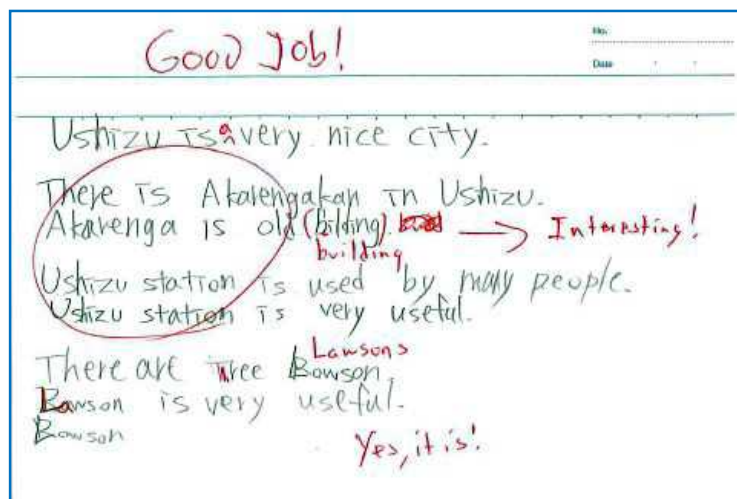 Good Job!
No.
Date
Ushizu is a very nice city.
There is Akarengakan in Ushizu.
Akarenga is old (bilding). → Interesting!
building
Ushizu station is used by many people.
Ushizu station is very useful.
Lawsons
There are Three Bowson.
Lawson is very useful.
Bowson
Yes, it is!